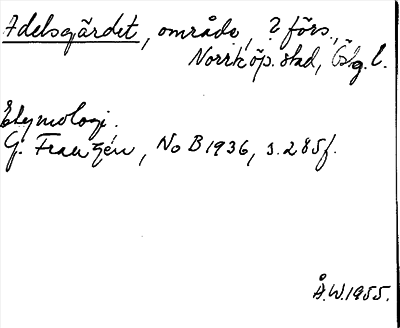 Adelsgärdet, område, ? förs.,
Norrköp. stad, Östg. l.
Etymologi.
G. Franzén, NoB 1936, s. 285f.
Å.W. 1955.